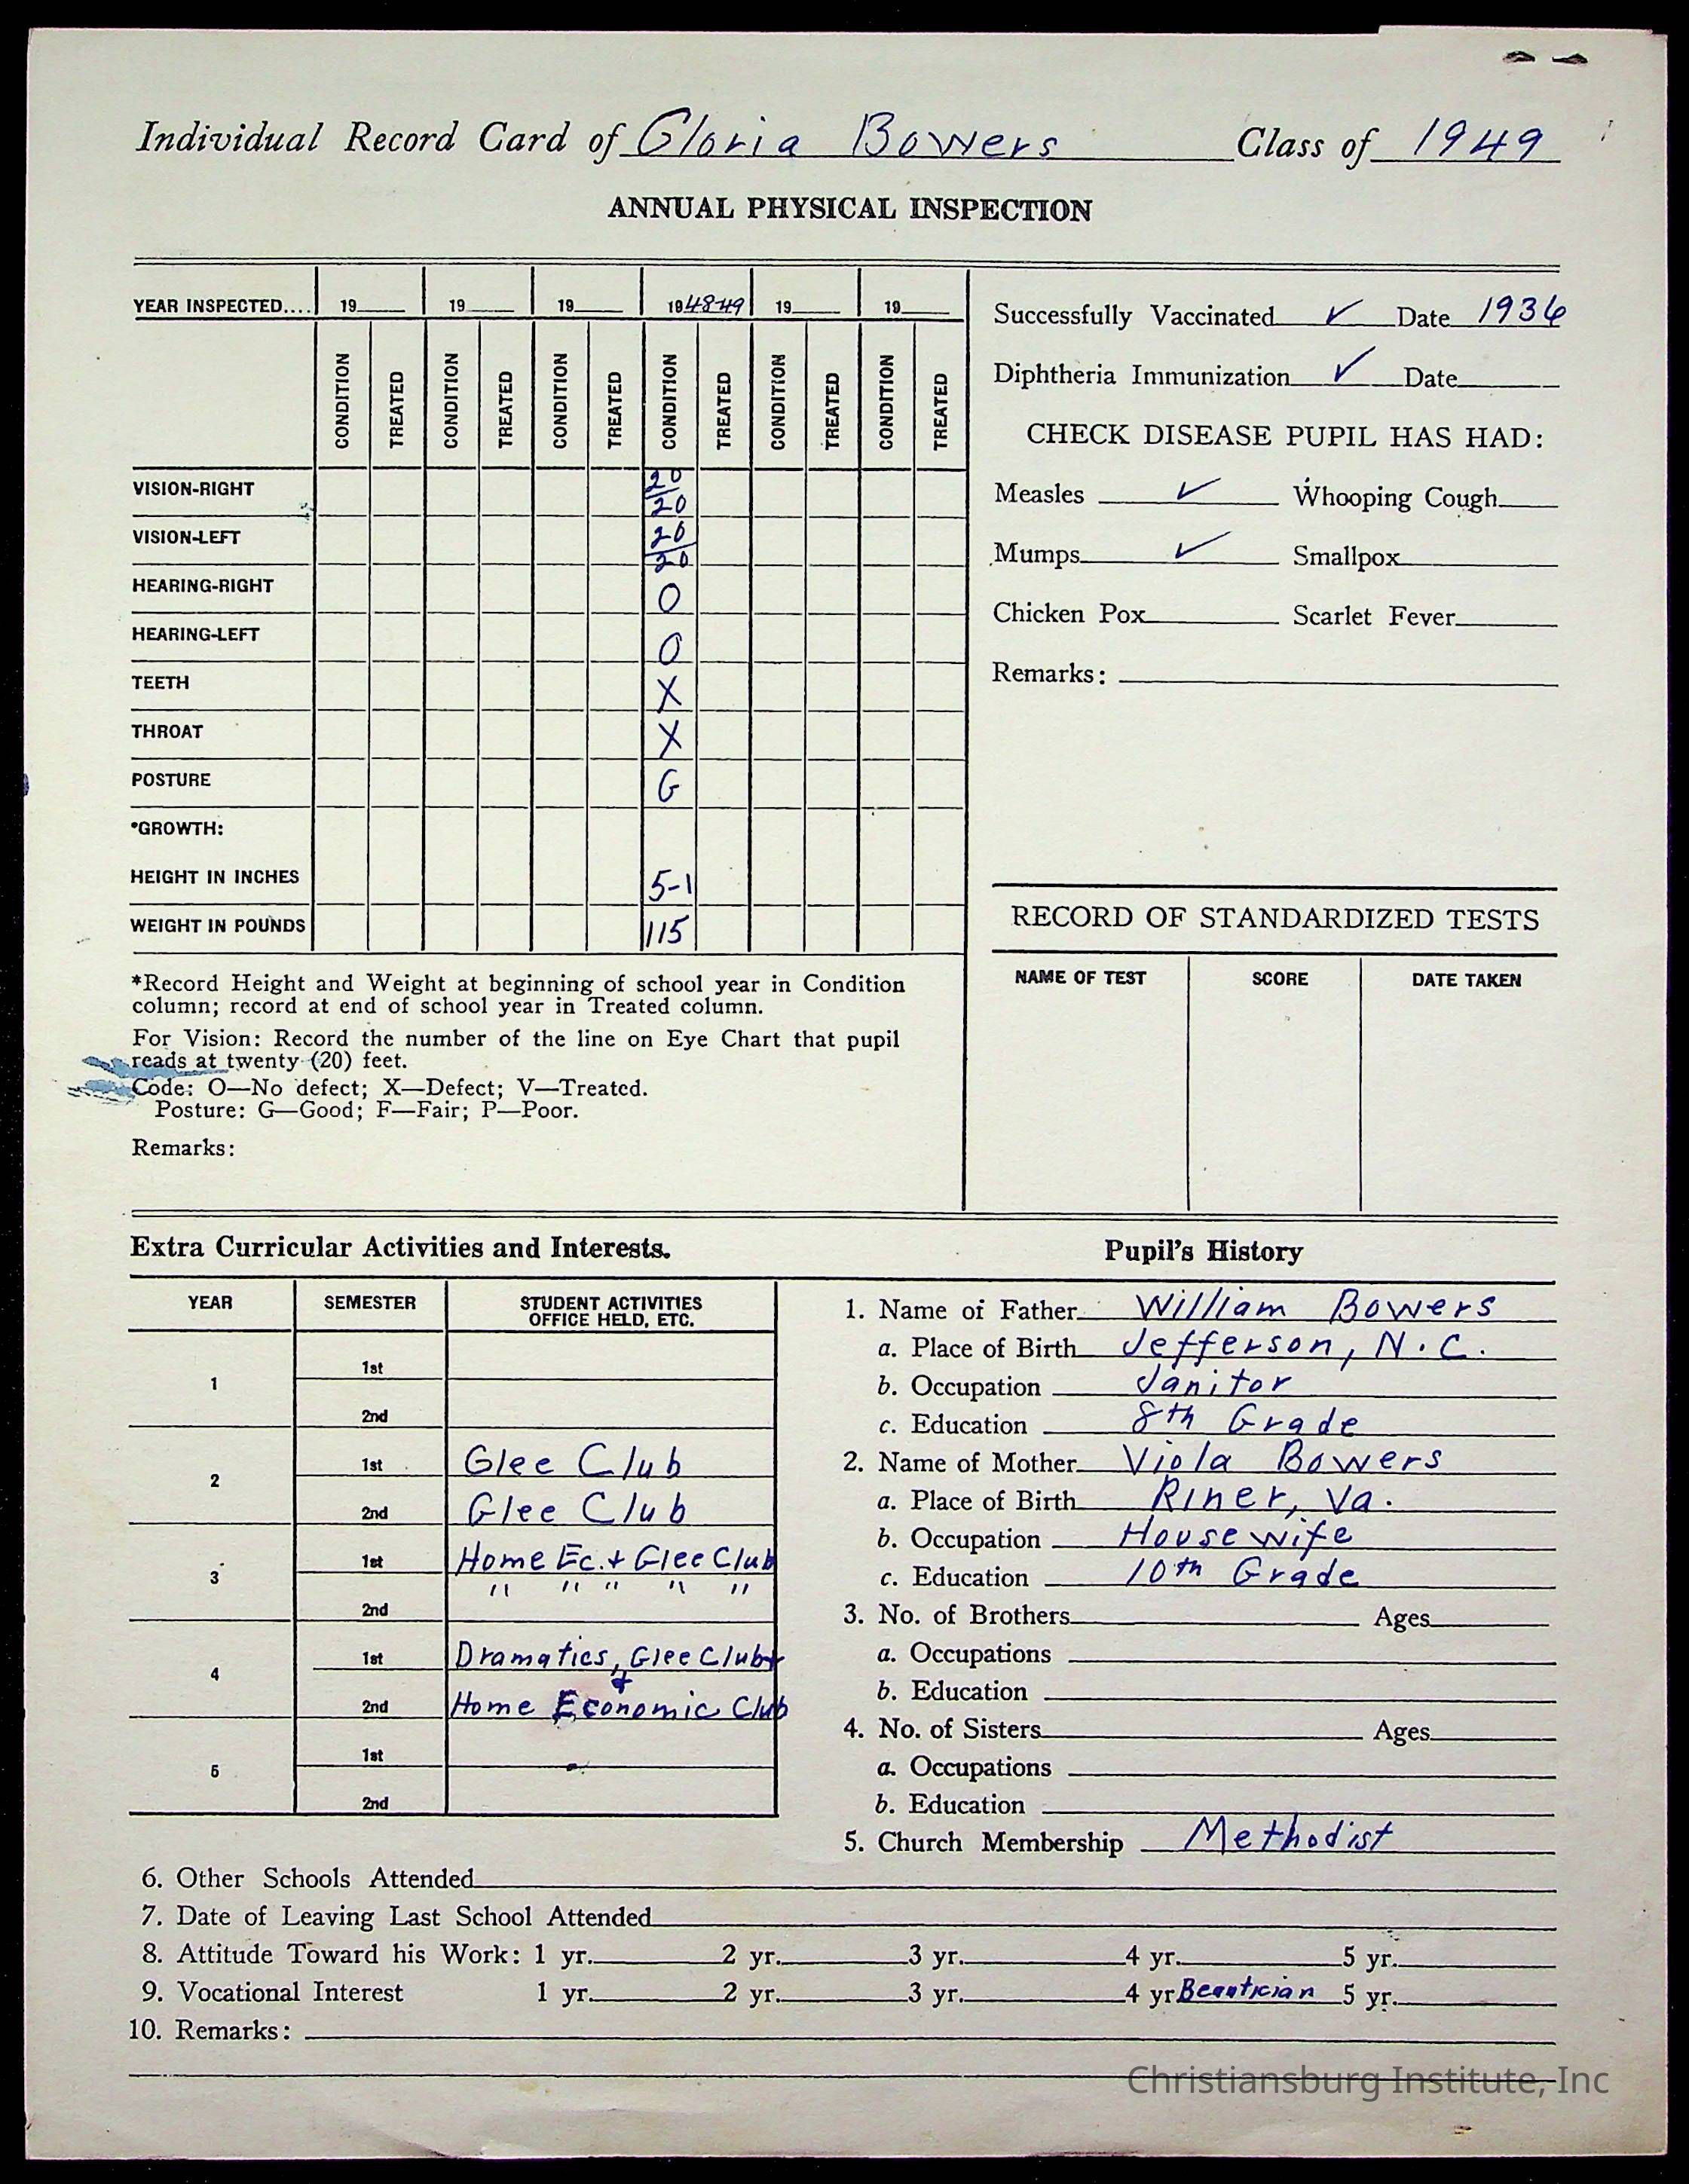 Individual Record Card of Gloria Bowers Class of 1949
ANNUAL PHYSICAL INSPECTION
YEAR INSPECTED.... 19 19 19 1948-49 19 19
CONDITION TREATED CONDITION TREATED CONDITION TREATED CONDITION TREATED CONDITION TREATED CONDITION TREATED
VISION-RIGHT 20/20
VISION-LEFT 20/20
HEARING-RIGHT O
HEARING-LEFT O
TEETH X
THROAT X
POSTURE G
*GROWTH:
HEIGHT IN INCHES 5-1
WEIGHT IN POUNDS 115
*Record Height and Weight at beginning of school year in Condition
column; record at end of school year in Treated column.
For Vision: Record the number of the line on Eye Chart that pupil
reads at twenty (20) feet.
Code: O—No defect; X—Defect; V—Treated.
Posture: G—Good; F—Fair; P—Poor.
Remarks:
Successfully Vaccinated ✓ Date 1936
Diphtheria Immunization ✓ Date
CHECK DISEASE PUPIL HAS HAD:
Measles ✓ Whooping Cough
Mumps ✓ Smallpox
Chicken Pox Scarlet Fever
Remarks:
RECORD OF STANDARDIZED TESTS
NAME OF TEST SCORE DATE TAKEN
Extra Curricular Activities and Interests.
YEAR SEMESTER STUDENT ACTIVITIES
OFFICE HELD, ETC.
1 1st
2nd
2 1st Glee Club
2nd Glee Club
3 1st Home Ec. + Glee Club
2nd " " " " "
4 1st Dramatics, Glee Club +
+
2nd Home Economic Club
5 1st
2nd
Pupil's History
1. Name of Father William Bowers
a. Place of Birth Jefferson, N.C.
b. Occupation Janitor
c. Education 8th Grade
2. Name of Mother Viola Bowers
a. Place of Birth Riner, Va.
b. Occupation Housewife
c. Education 10th Grade
3. No. of Brothers Ages
a. Occupations
b. Education
4. No. of Sisters Ages
a. Occupations
b. Education
5. Church Membership Methodist
6. Other Schools Attended
7. Date of Leaving Last School Attended
8. Attitude Toward his Work: 1 yr. 2 yr. 3 yr. 4 yr. 5 yr.
9. Vocational Interest 1 yr. 2 yr. 3 yr. 4 yr Beautician 5 yr.
10. Remarks:
Christiansburg Institute, Inc